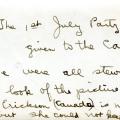 The 1st July Party
given to the Ca
we were all stew
look of the pictine
Erickson (Canada) is n
but she could not hea